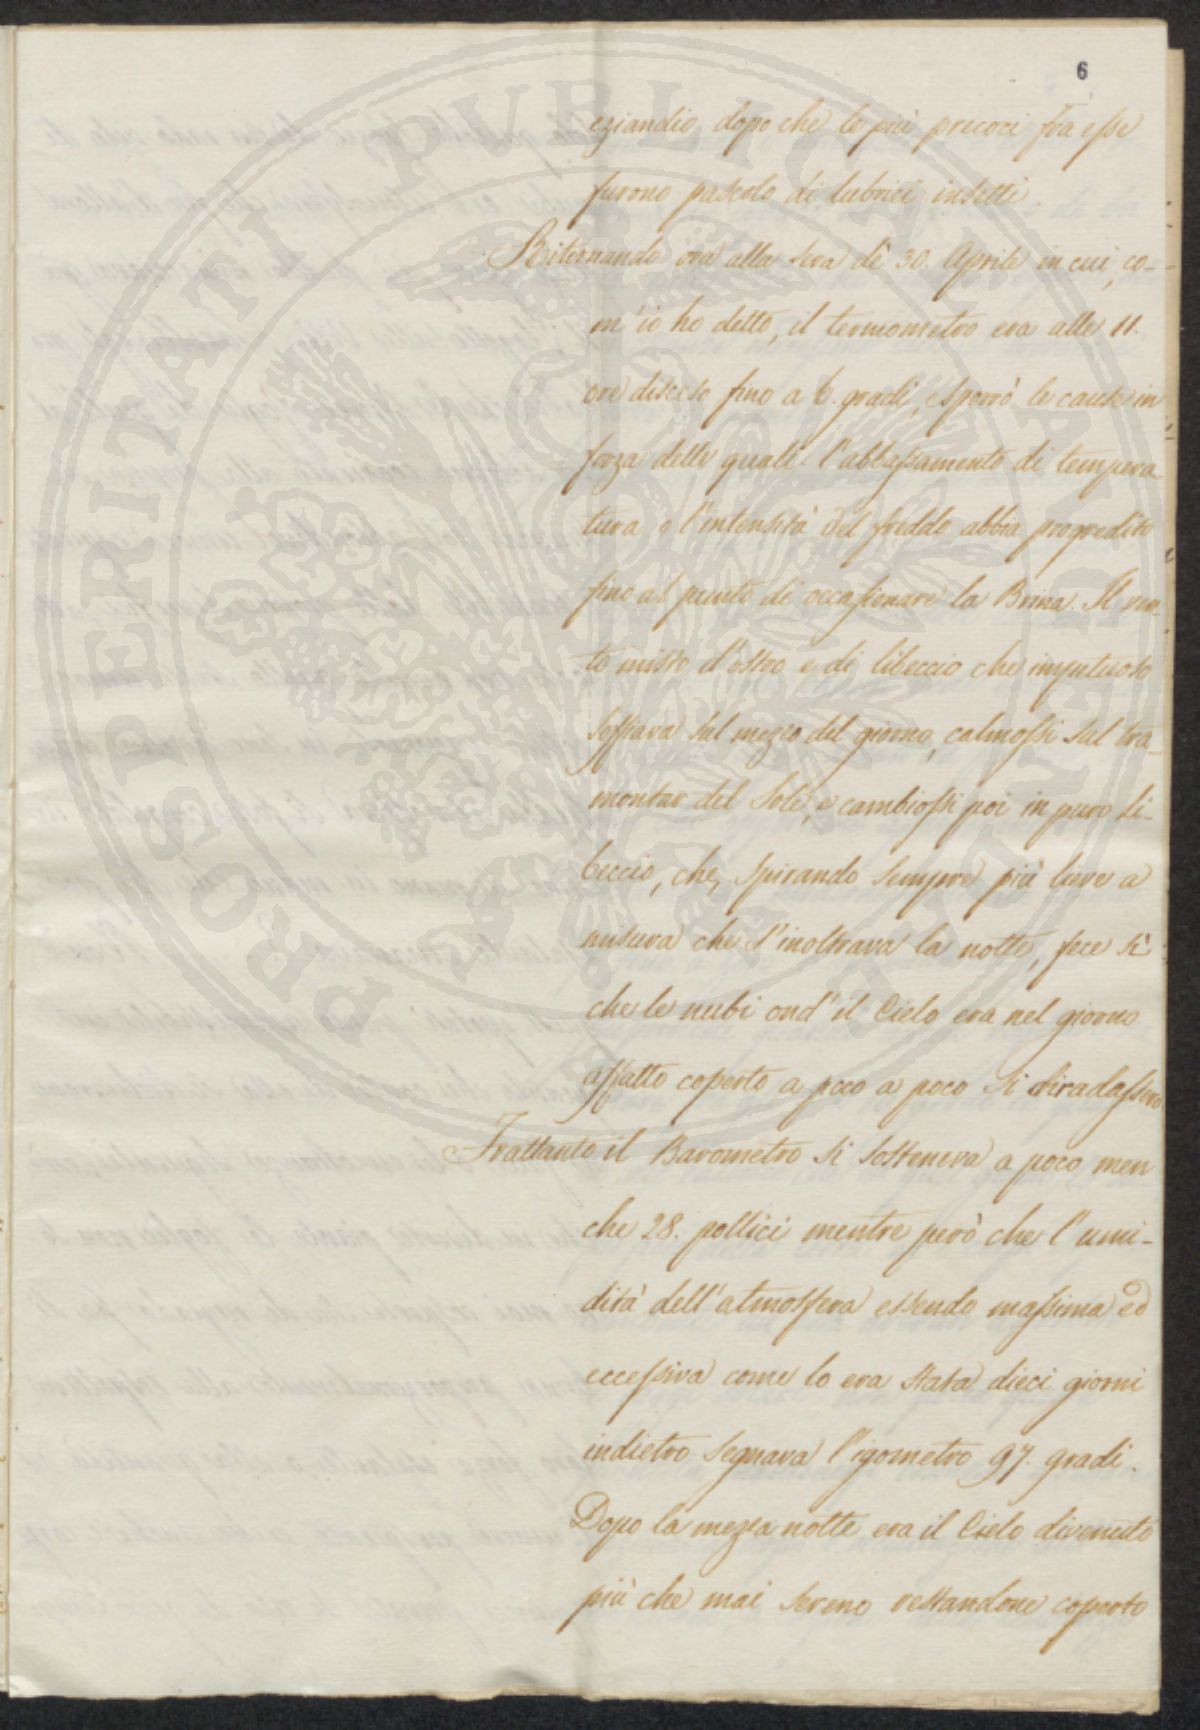 6
eziandio dopo che le più precoci fra esse
furono pascolo di lubrici insetti.
Ritornando ora alla sera dì 30. Aprile in cui, co-
m'io ho detto, il termometro era alle 11.
ore disceso fino a 6. gradi, esporrò le cause in
forza delle quali l'abbassamento di tempera-
tura e l'intensità del freddo abbia progredito
fino al punto di occasionare la Brina. Il ven-
to misto d'ostro e di libeccio che impetuoso
soffiava sul mezzo del giorno, calmossi sul tra-
montar del Sole, e cambiossi poi in puro Li-
beccio, che, spirando sempre più lieve a
misura che s'inoltrava la notte, fece sì
che le nubi ond'il Cielo era nel giorno
affatto coperto a poco a poco si diradassero
Frattanto il Barometro si sosteneva a poco men
che 28. pollici mentre però che l'umi-
dità dell'atmosfera essendo massima ed
eccessiva come lo era stata dieci giorni
indietro segnava l'igometro 97. gradi.
Dopo la mezza notte era il Cielo divenuto
più che mai sereno restandone coperto
PROSPERITATI PUBLICAE AUGENDAE